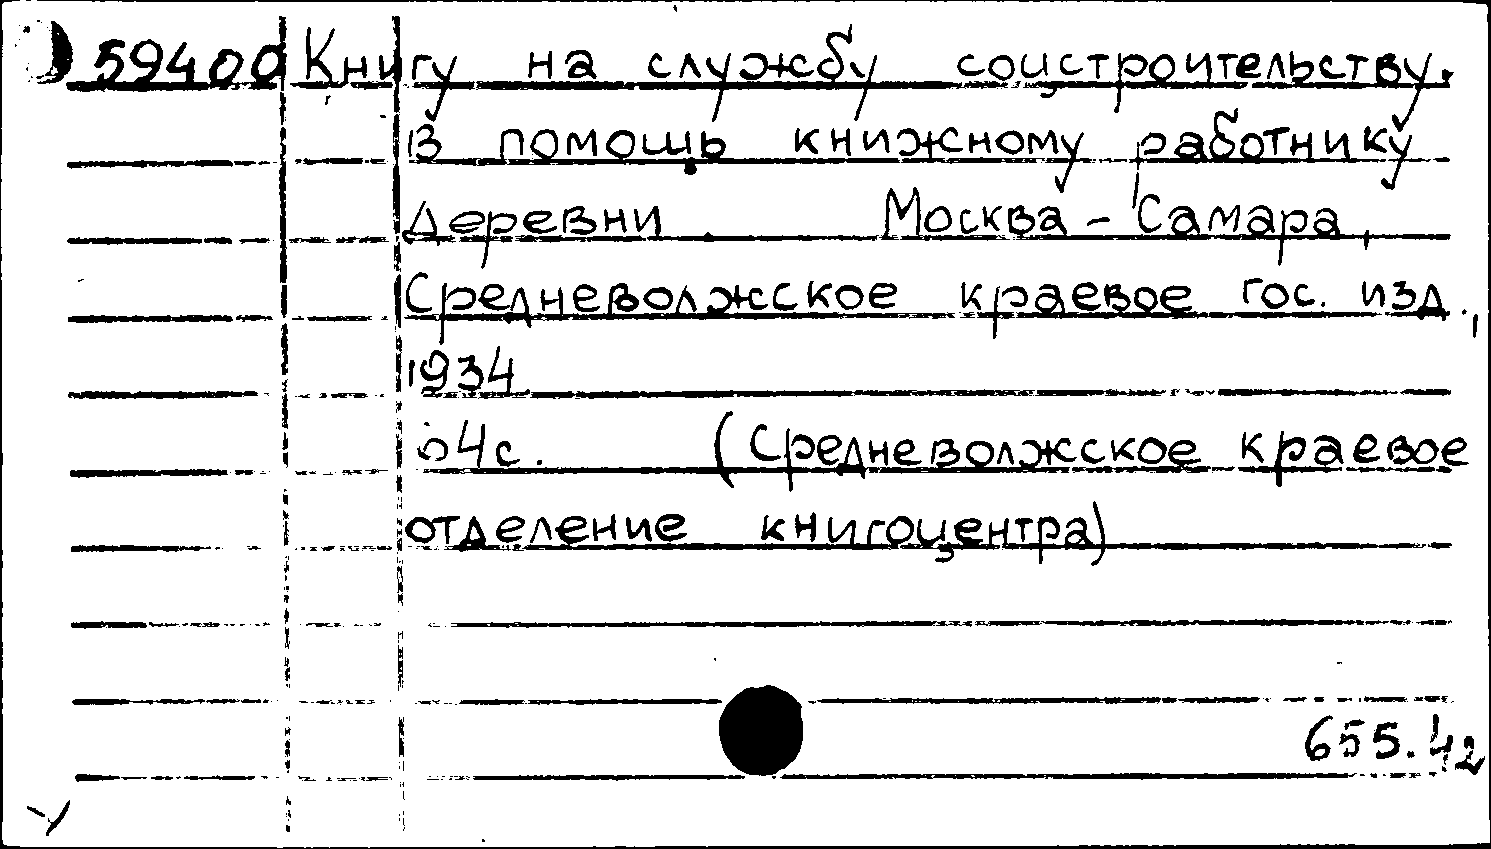 59400 Книгу на службу соцстроительству.
В помощь книжному работнику
деревни. Москва - Самара,
Средневолжское краевое гос. изд.,
1934.
64с. (Средневолжское краевое
отделение книгоцентра)
655.42